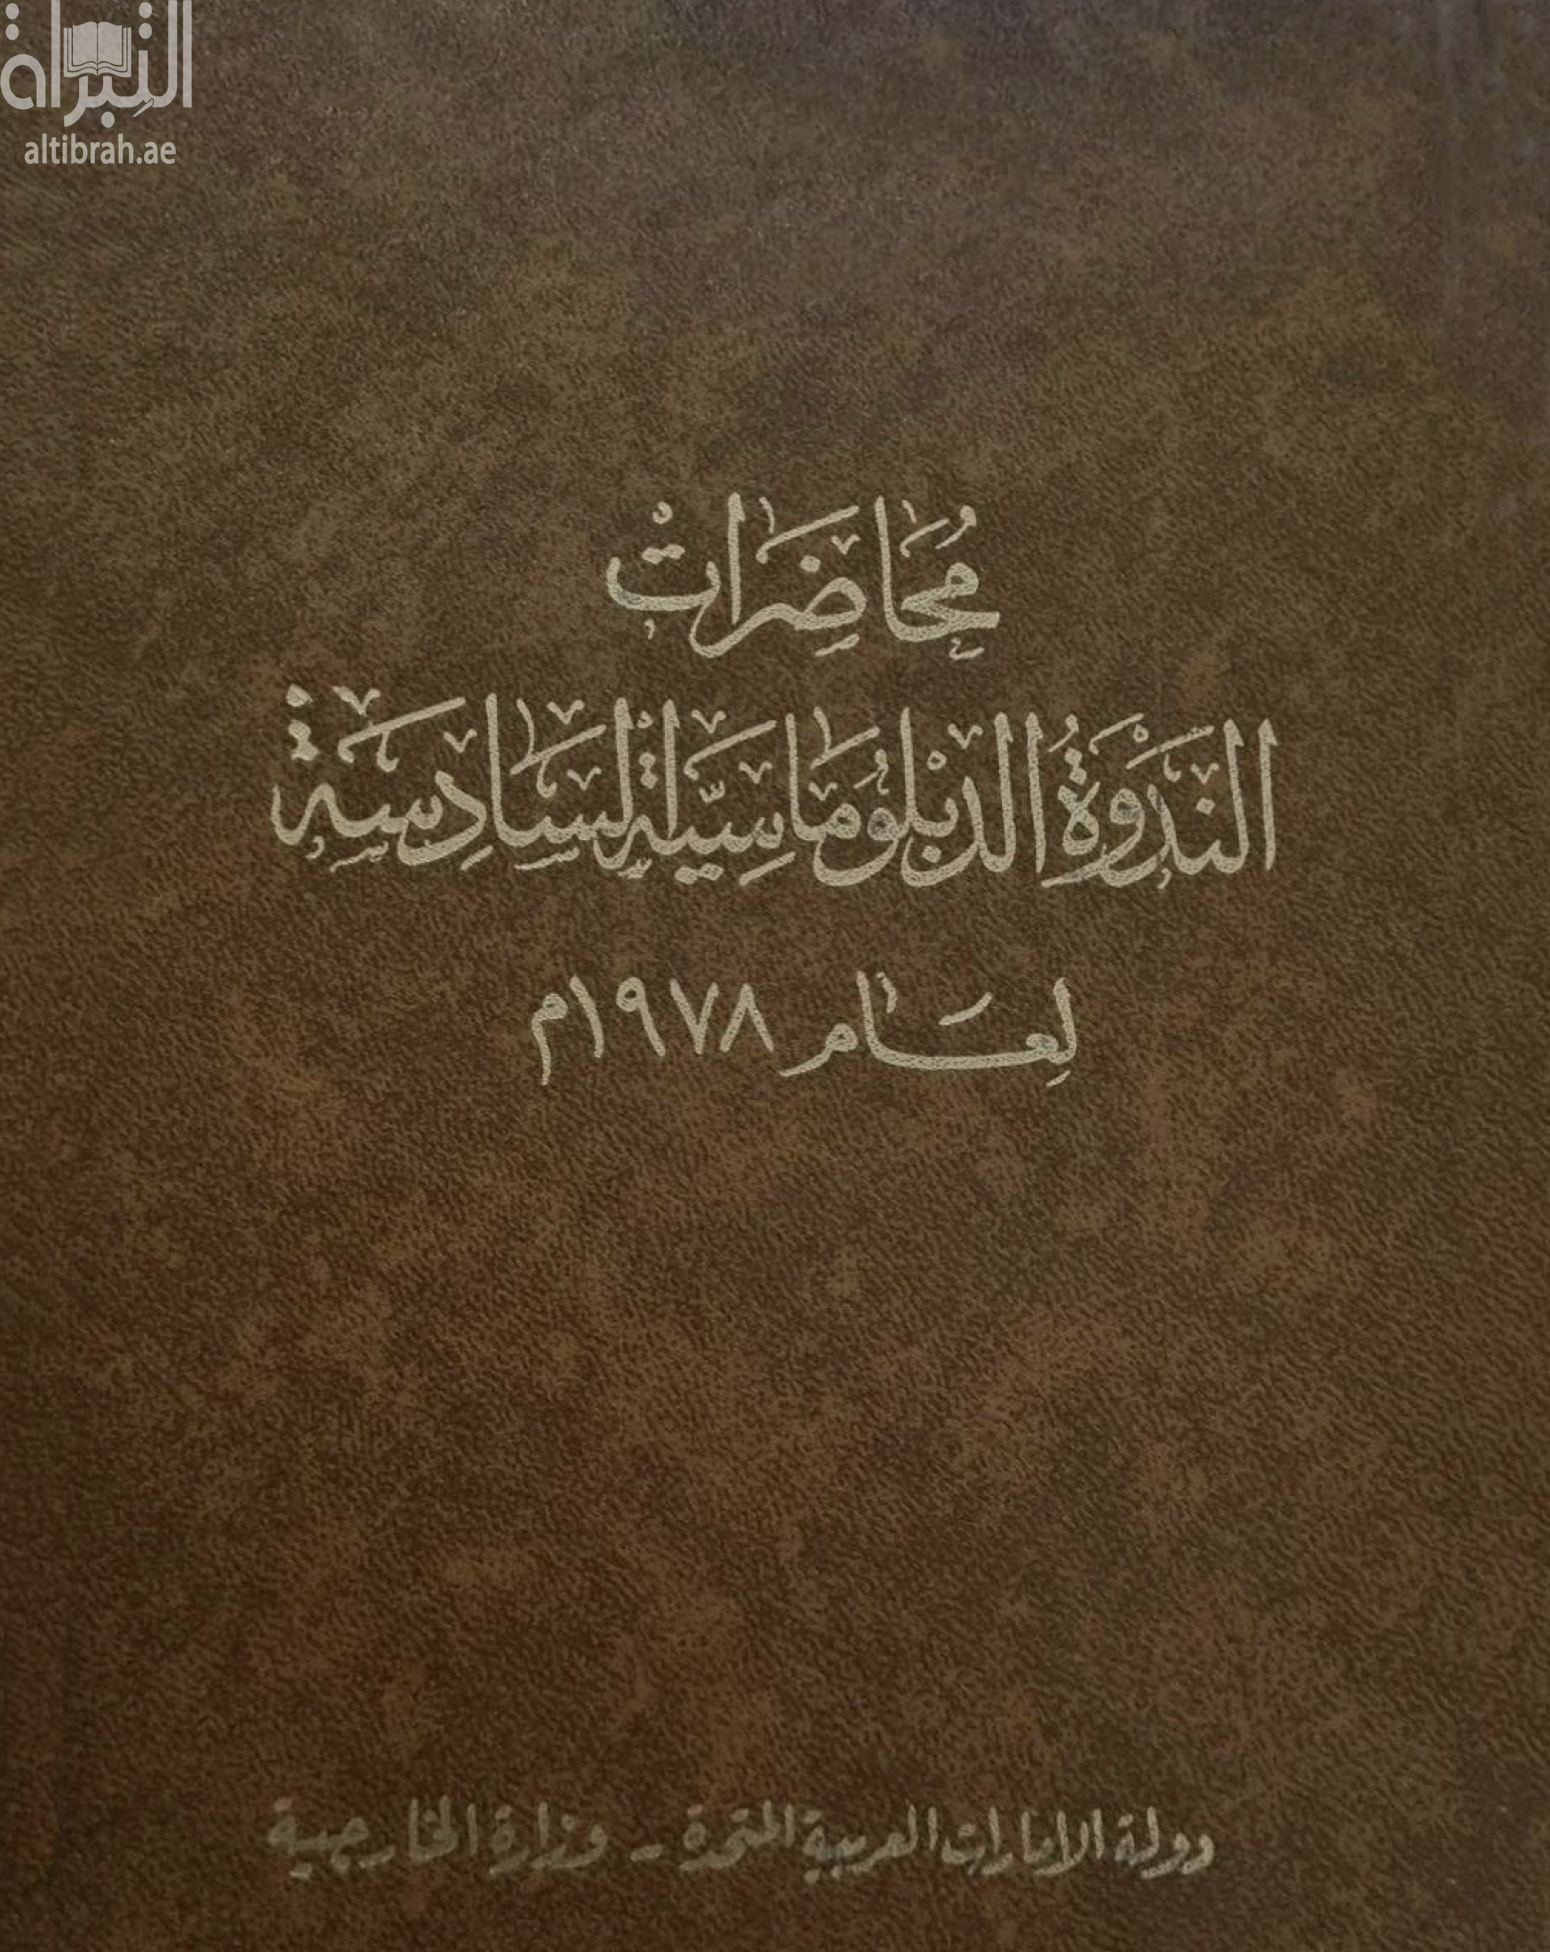 التبراة
altibrah.ae
مُحَاضِرَات
النَدْوَةُ الدبْلُومَاسِيَّة السَادِسَة
لِعَام ١٩٧٨م
دولة الامارات العربية المتحدة - وزارة الخارجية